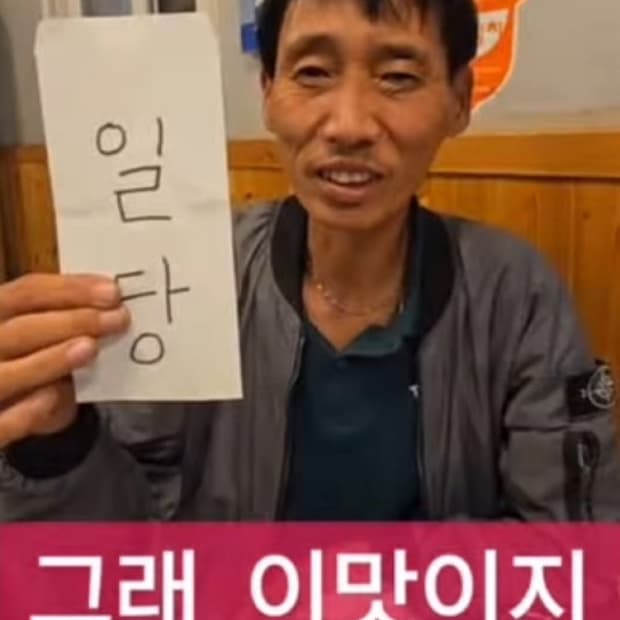 일
당
그래 이맛이지